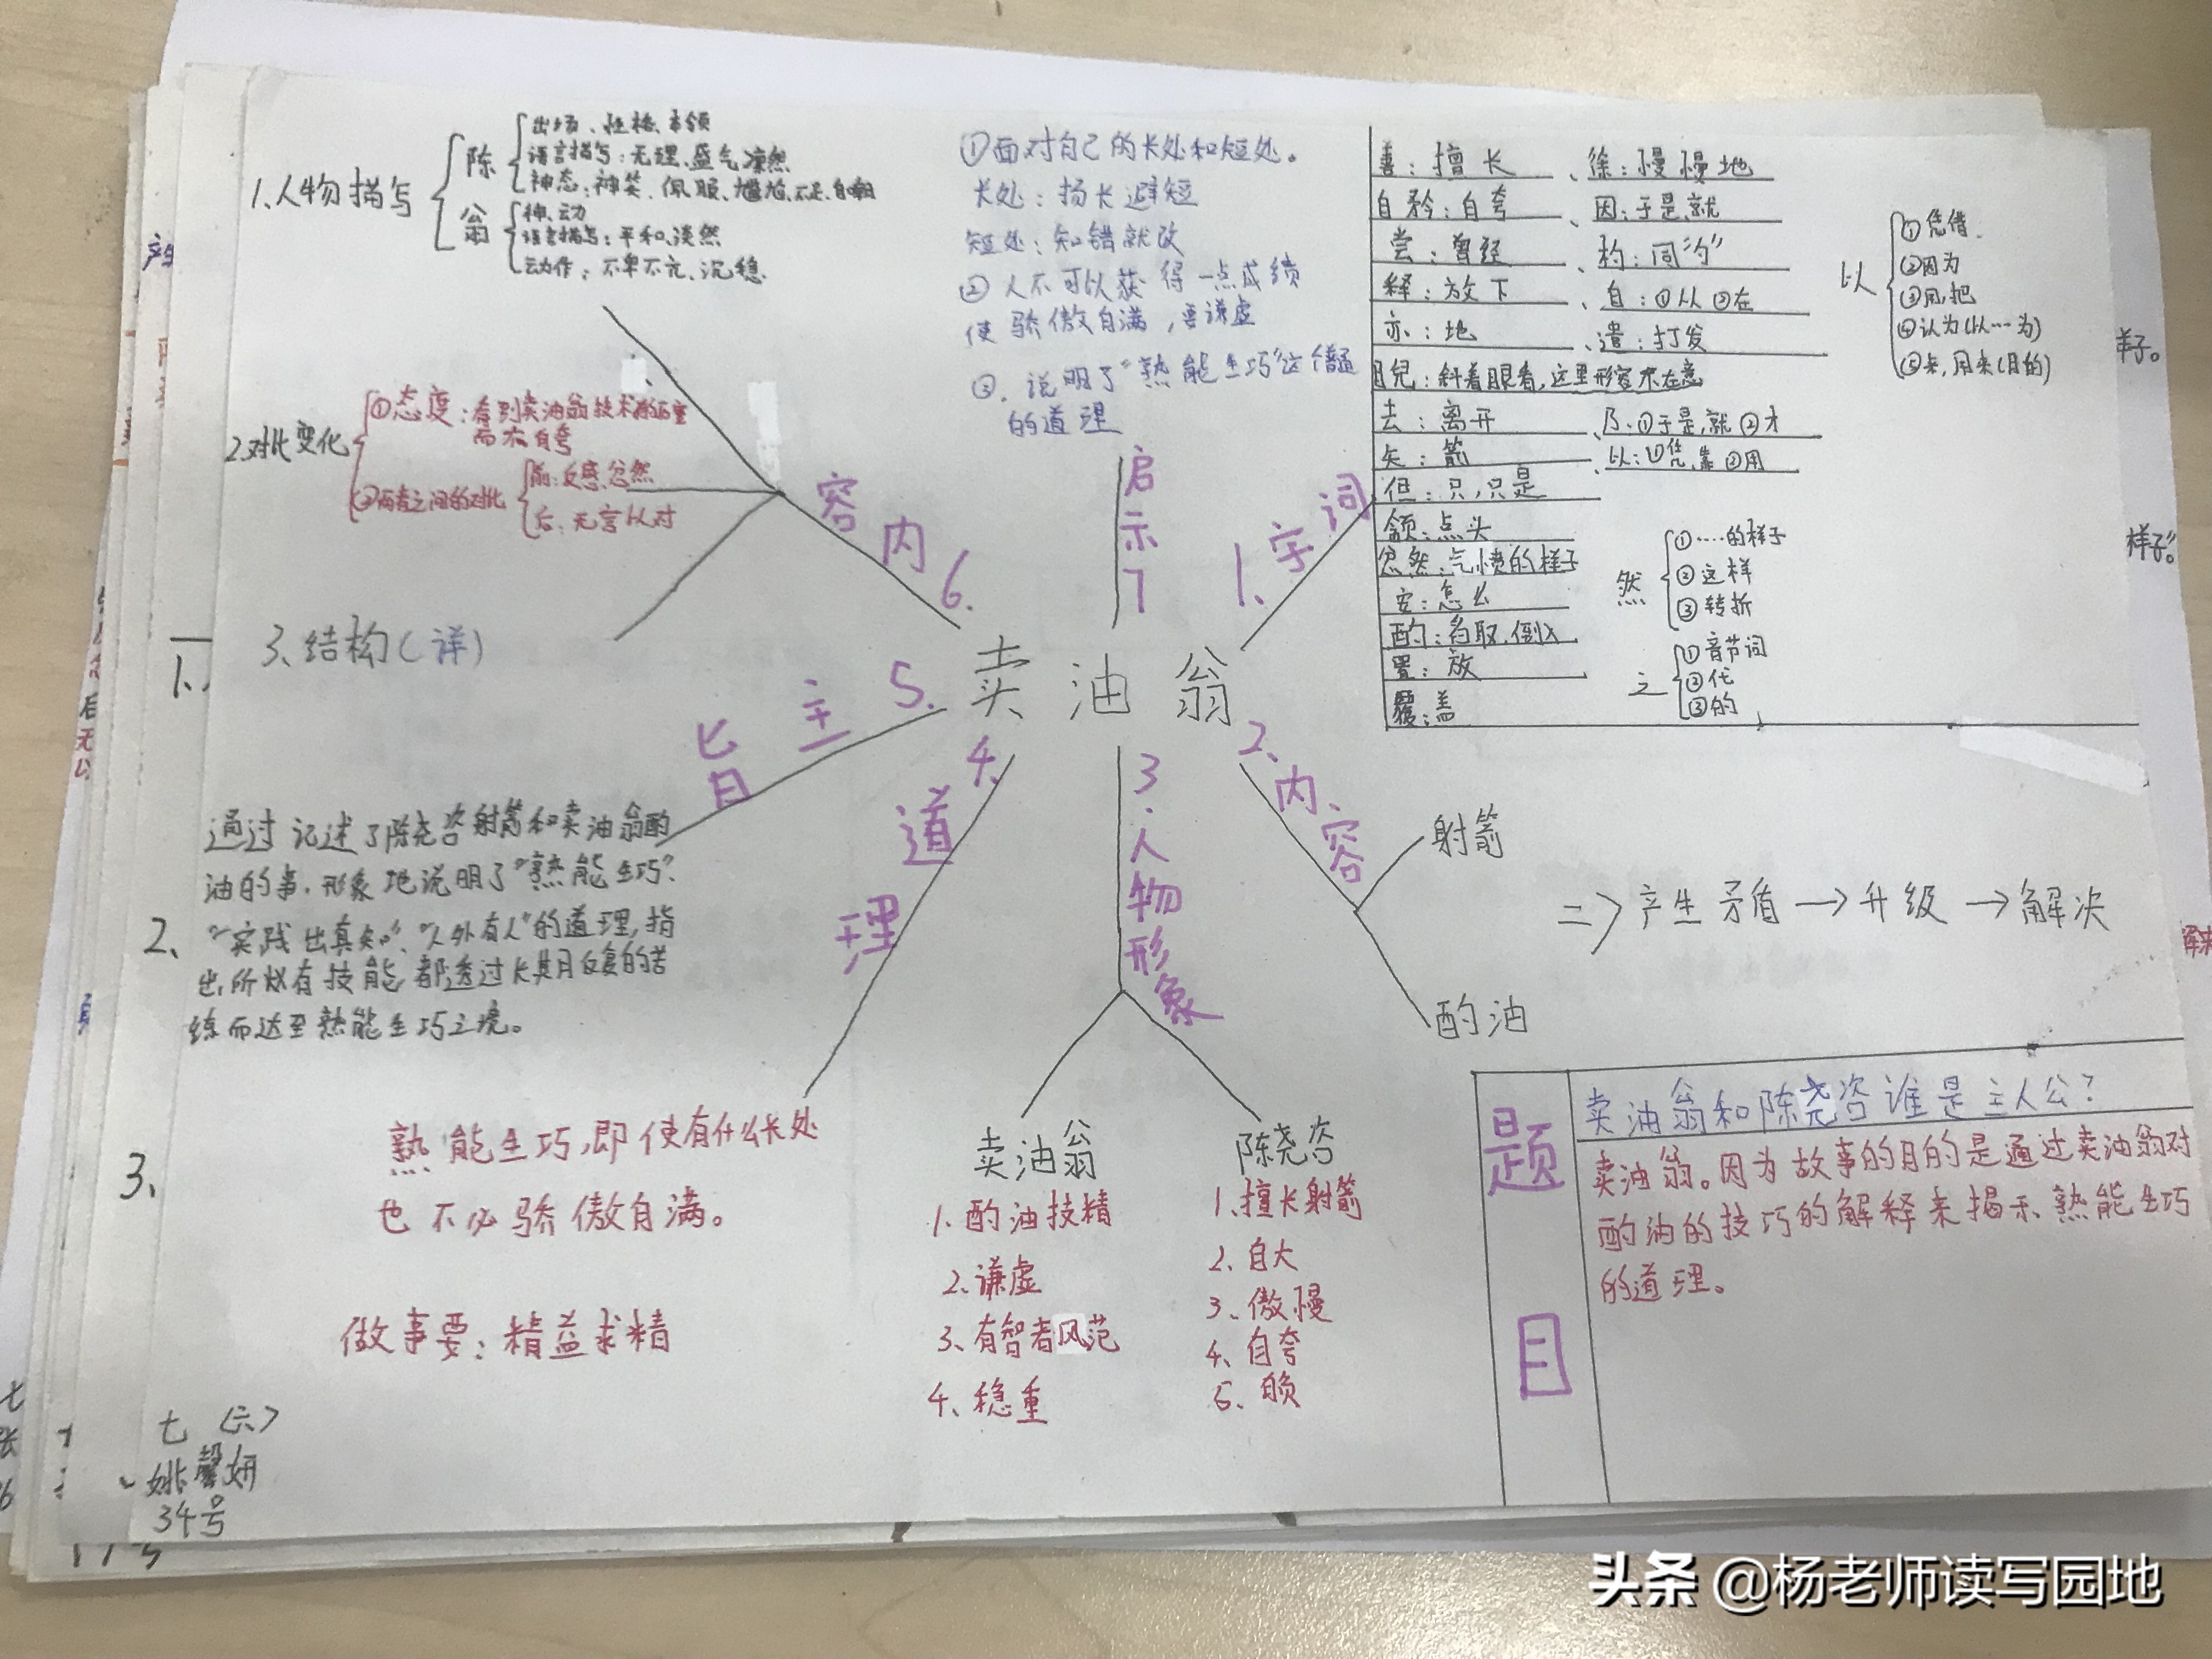 卖油翁
1.字词
善:擅长、徐:慢慢地
自矜:自夸、因:于是,就
尝:曾经、杓:同"勺"
释:放下、自:①从②在
亦:地、遣:打发
睨:斜着眼看,这里形容不在意
去:离开、乃:①于是,就②才
矢:箭、以:①凭,靠②用
但:只,只是
颔:点头
忿然:气愤的样子
安:怎么
酌:舀取,倒入
置:放
覆:盖
以
①凭借.
②因为
③用,把
④认为(以…为)
⑤来,用来(目的)
然
①……的样子
②这样
③转折
之
①音节词
②代
③的
2.内容
射箭
酌油
=>产生矛盾→升级→解决
3.人物形象
卖油翁
1.酌油技精
2.谦虚
3、有智者风范
4、稳重
陈尧咨
1.擅长射箭
2.自大
3、傲慢
4.自夸
5、自负
4.道理
熟能生巧,即使有什么长处
也不必骄傲自满。
做事要:精益求精
5.主旨
通过记述了陈尧咨射箭和卖油翁酌
油的事.形象地说明了"熟能生巧".
"实践出真知"、"人外有人"的道理,指
出所有技能都透过长期反复的苦
练而达至熟能生巧之境。
6.内容
1、人物描写
陈
出场、性格、本领
语言描写:无理、盛气凛然
翁
神、动
语言描写:平和、淡然
动作:不卑不亢、沉稳.
2.对比变化
①态度:看到卖油翁技术
②两者之间的对比
前:反感,忿然
后:无言以对
3、结构(详)
启示7
①面对自己的长处和短处。
长处:扬长避短
短处:知错就改
②人不可以获得一点成绩
使骄傲自满,要谦虚
③.说明了"熟能生巧"这个普通
的道理
题目
卖油翁和陈尧咨谁是主人公?
卖油翁。因为故事的目的是通过卖油翁对
酌油的技巧的解释来揭示、熟能生巧
的道理。
七(六)
姚馨妍
34号
样子。
样子。
1、
2、
3、
头条 @杨老师读写园地